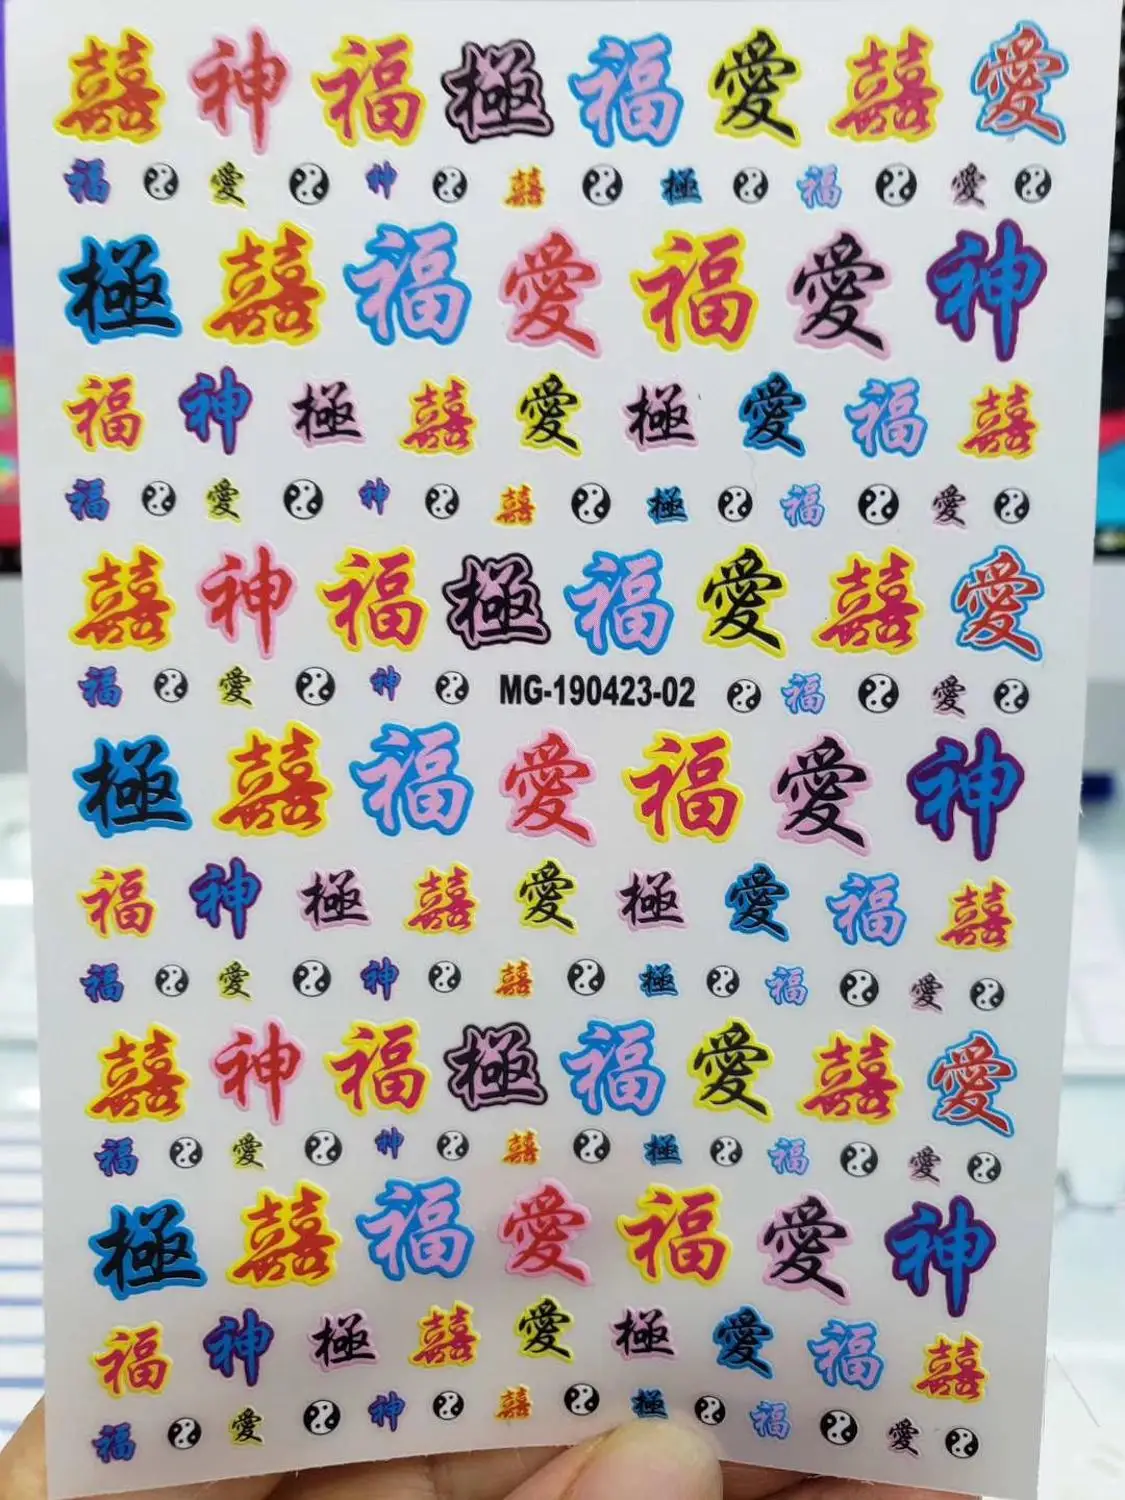 囍 神 福 極 福 愛 囍 愛
福 愛 神 囍 極 福 愛
極 囍 福 愛 福 愛 神
福 神 極 囍 愛 極 愛 福 囍
福 愛 神 囍 極 福 愛
囍 神 福 極 福 愛 囍 愛
福 愛 神 MG-190423-02 福 愛
極 囍 福 愛 福 愛 神
福 神 極 囍 愛 極 愛 福 囍
福 愛 神 囍 極 福 愛
囍 神 福 極 福 愛 囍 愛
福 愛 神 囍 極 福 愛
極 囍 福 愛 福 愛 神
福 神 極 囍 愛 極 愛 福 囍
福 愛 神 囍 極 福 愛